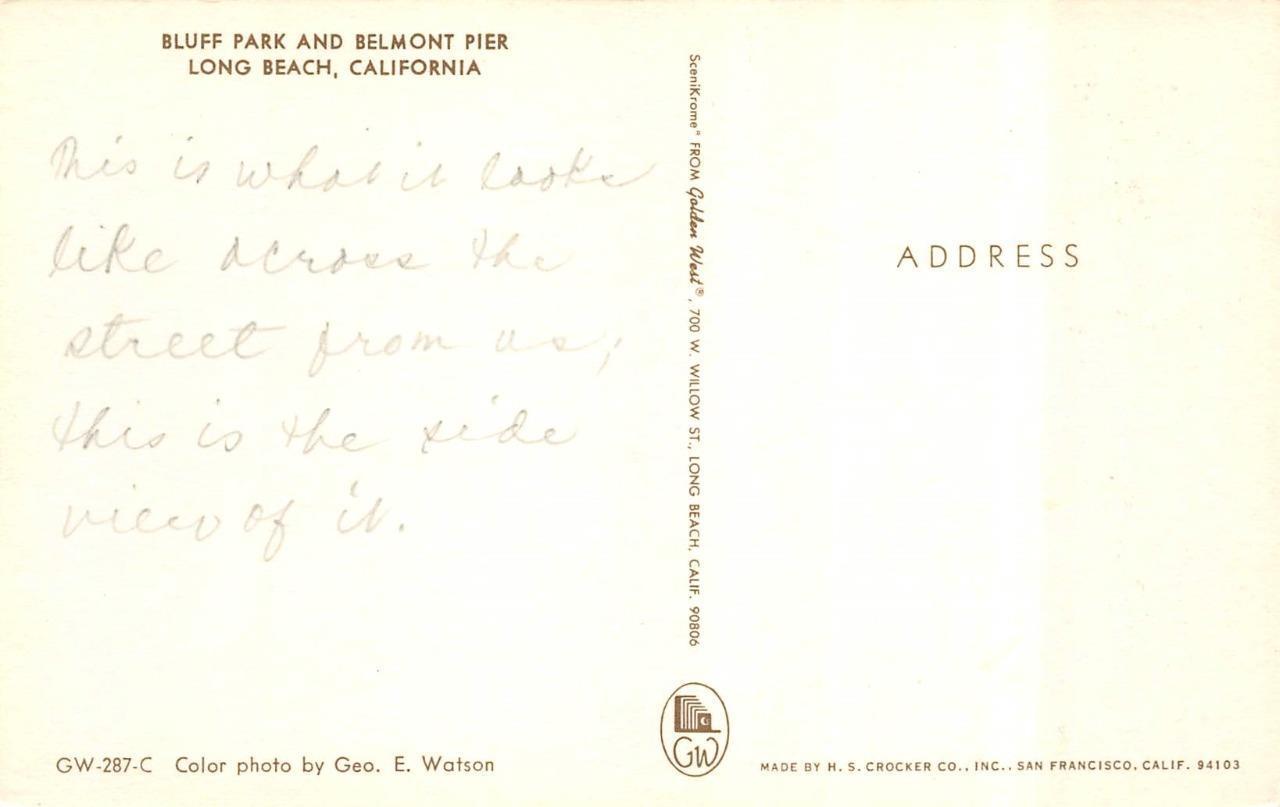 BLUFF PARK AND BELMONT PIER
LONG BEACH, CALIFORNIA
This is what it looks
like across the
street from us;
this is the side
view of it.
GW-287-C Color photo by Geo. E. Watson
SceniKrome® FROM Golden West®, 700 W. WILLOW ST., LONG BEACH, CALIF. 90806
GW
ADDRESS
MADE BY H. S. CROCKER CO., INC., SAN FRANCISCO, CALIF. 94103